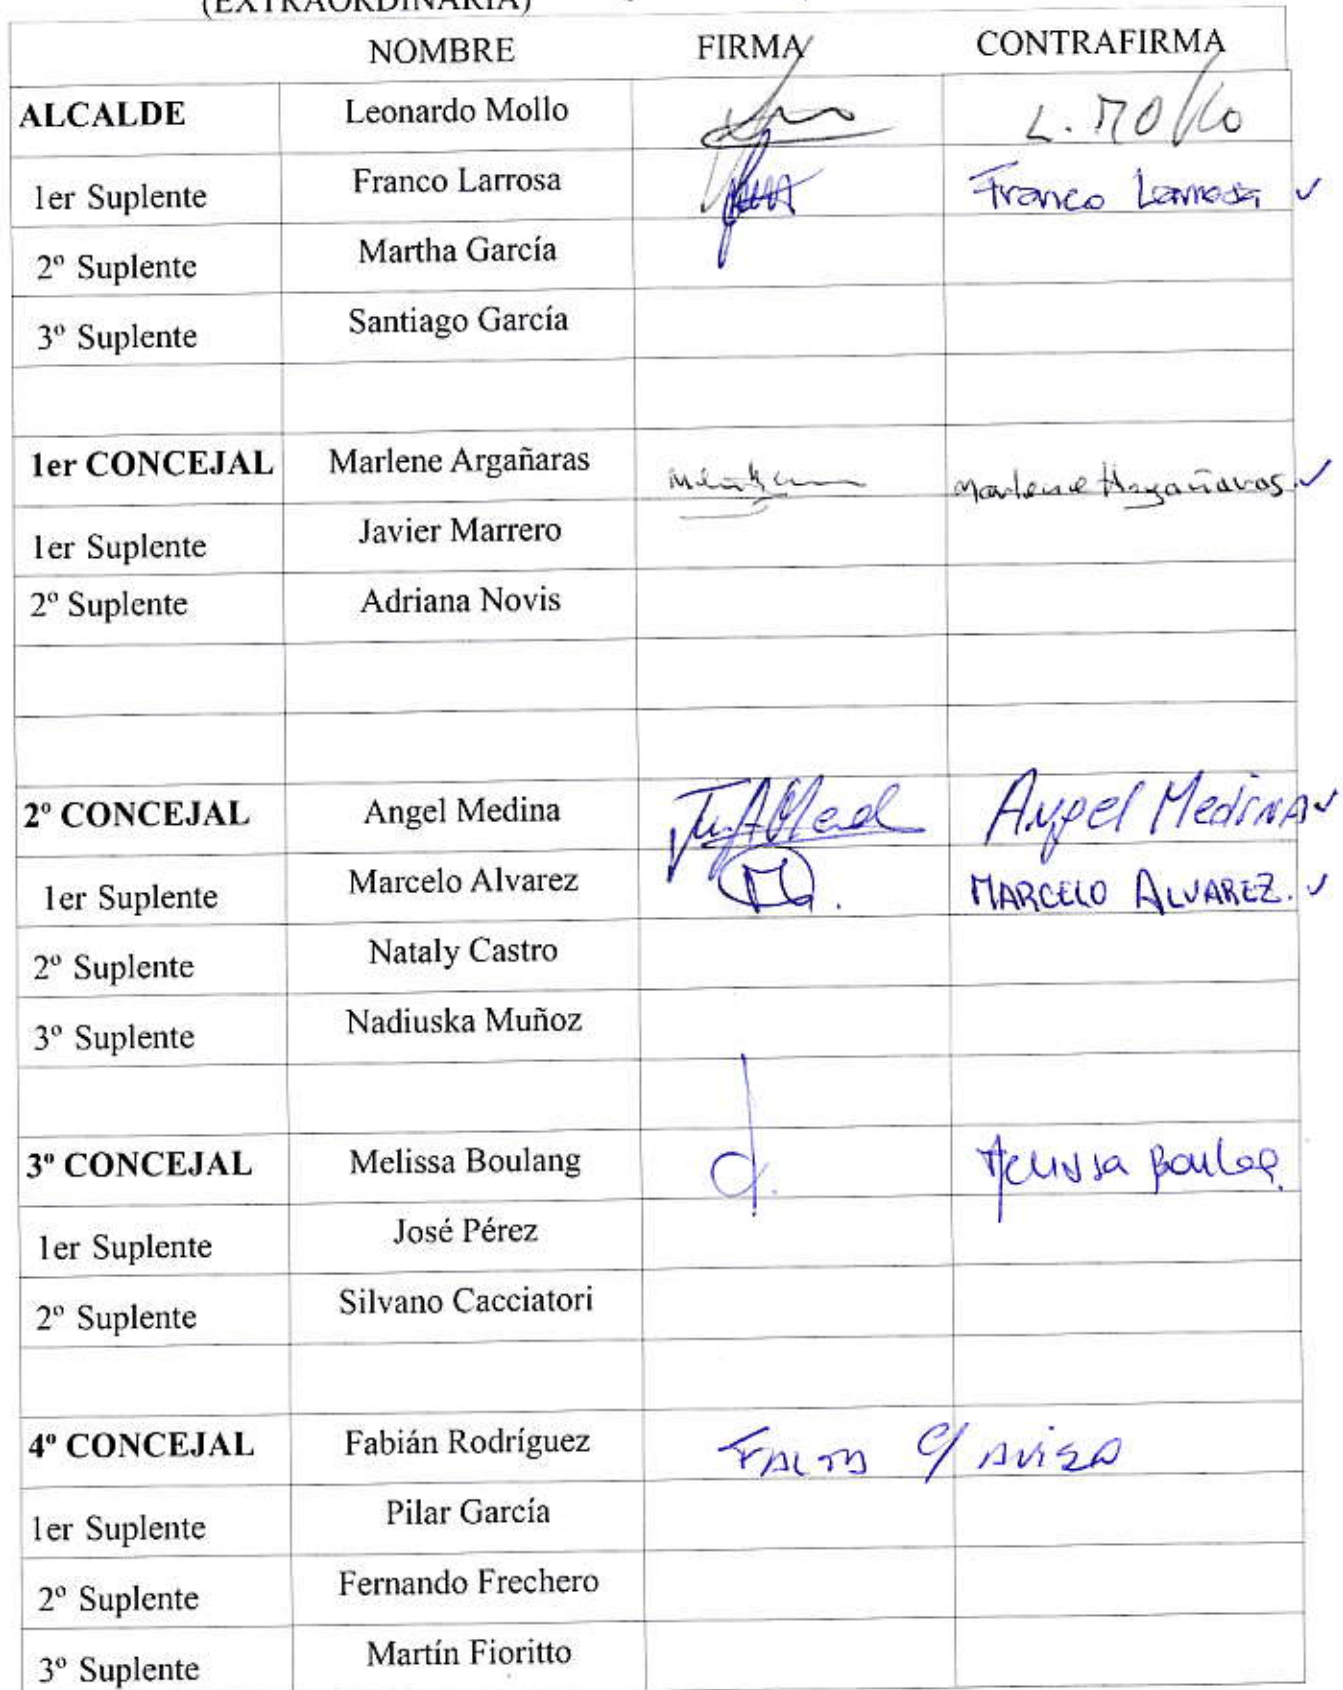 (EXTRAORDINARIA)
NOMBRE FIRMA CONTRAFIRMA
ALCALDE Leonardo Mollo L. Mollo
1er Suplente Franco Larrosa Franco Larrosa ✓
2º Suplente Martha García
3º Suplente Santiago García
1er CONCEJAL Marlene Argañaras Marlene Argañaras ✓
1er Suplente Javier Marrero
2º Suplente Adriana Novis
2º CONCEJAL Angel Medina Angel Medina ✓
1er Suplente Marcelo Alvarez M. MARCELO ALVAREZ. ✓
2º Suplente Nataly Castro
3º Suplente Nadiuska Muñoz
3º CONCEJAL Melissa Boulang Melissa
1er Suplente José Pérez
2º Suplente Silvano Cacciatori
4º CONCEJAL Fabián Rodríguez FALTA C/ AVISO
1er Suplente Pilar García
2º Suplente Fernando Frechero
3º Suplente Martín Fioritto